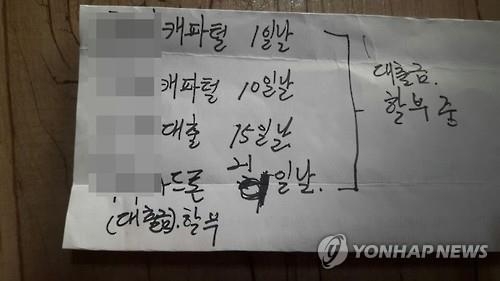 캐파털 1일날
캐파털 10일날
대출 15일날
카드론 21일날.
(대출금).할부
대출금.
할부 중
YONHAP NEWS